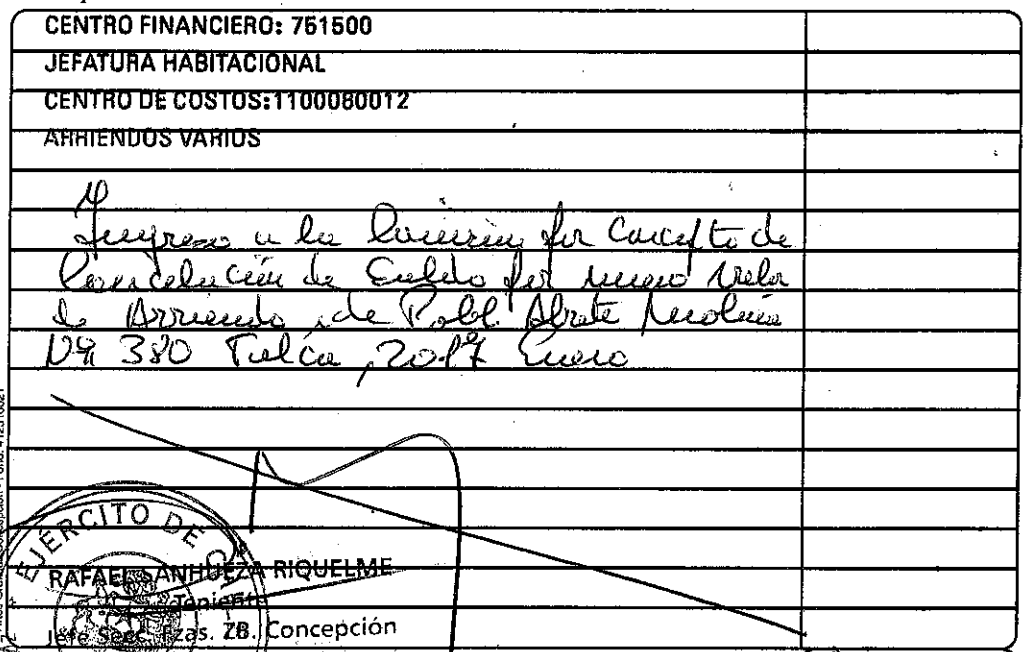 CENTRO FINANCIERO: 761500
JEFATURA HABITACIONAL
CENTRO DE COSTOS: 1100080012
ARRIENDOS VARIOS
Ingreso a la por Concepto de
Cancelación de Saldo por nuevo Valor
de Arriendo, de Pobl. Abate Molina
Nº 380 Talca, 2017 Enero
EJÉRCITO DE
RAFAEL SANHUEZA RIQUELME
Teniente
Jefe Secc. Fzas. ZB. Concepción